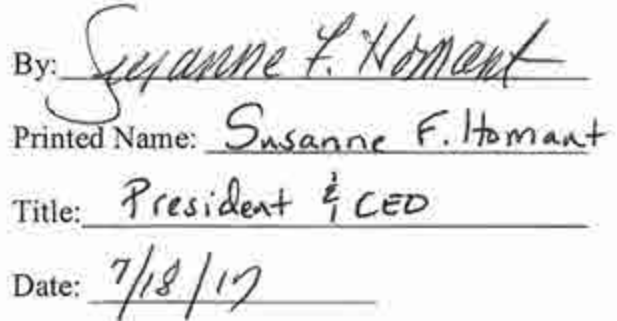 By: Susanne F. Homant
Printed Name: Susanne F. Homant
Title: President & CEO
Date: 7/18/17